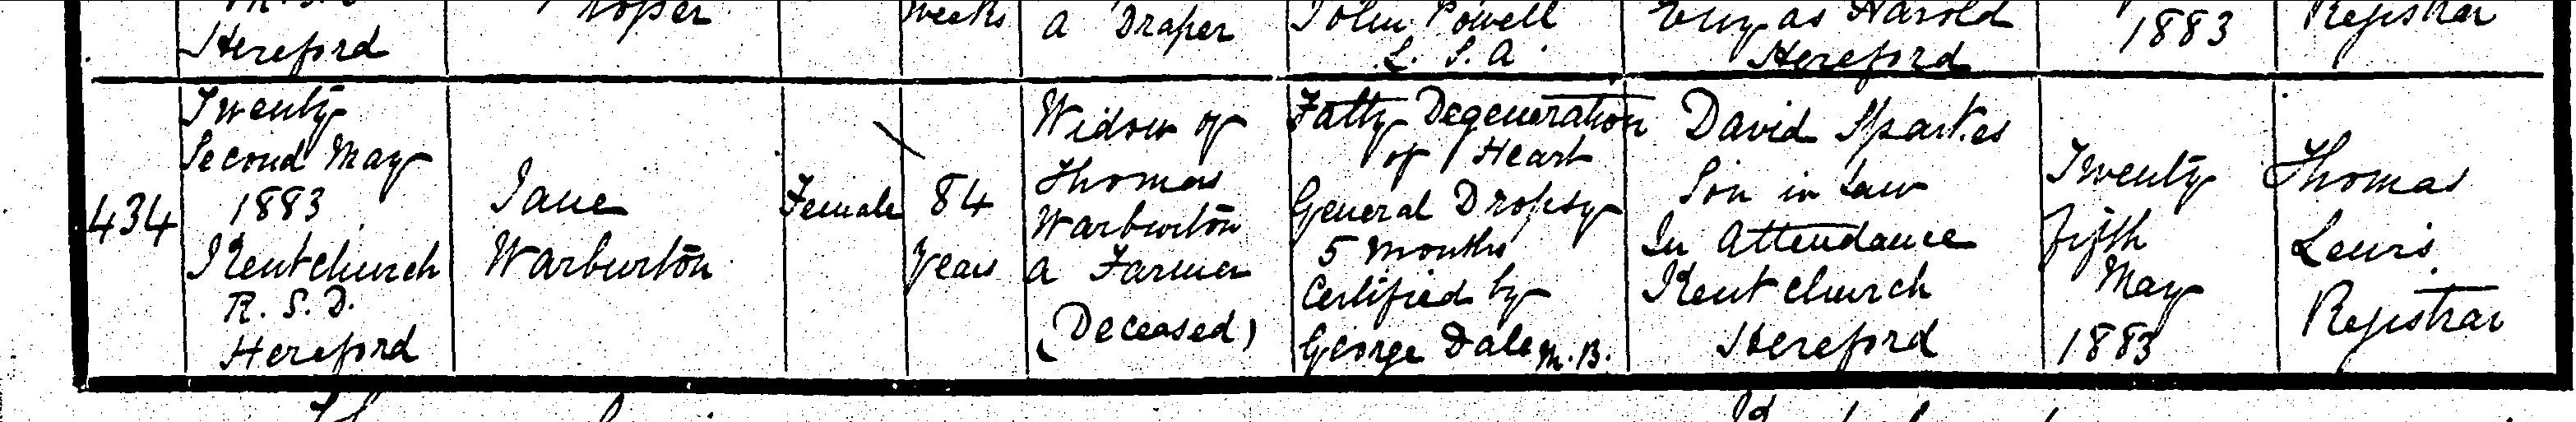 Hereford
weeks
a Draper
John Powell
L. S. A.
Ewyas Harold
Hereford
1883
Registrar
434
Twenty
Second May
1883
Kentchurch
R. S. D.
Hereford
Jane
Warburton
Female
84
years
Widow of
Thomas
Warburton
a Farmer
(Deceased)
Fatty Degeneration
of Heart
General Dropsy
5 months
Certified by
George Dale M.B.
David Sparkes
Son in law
In Attendance
Kentchurch
Hereford
Twenty
fifth
May
1883
Thomas
Lewis
Registrar